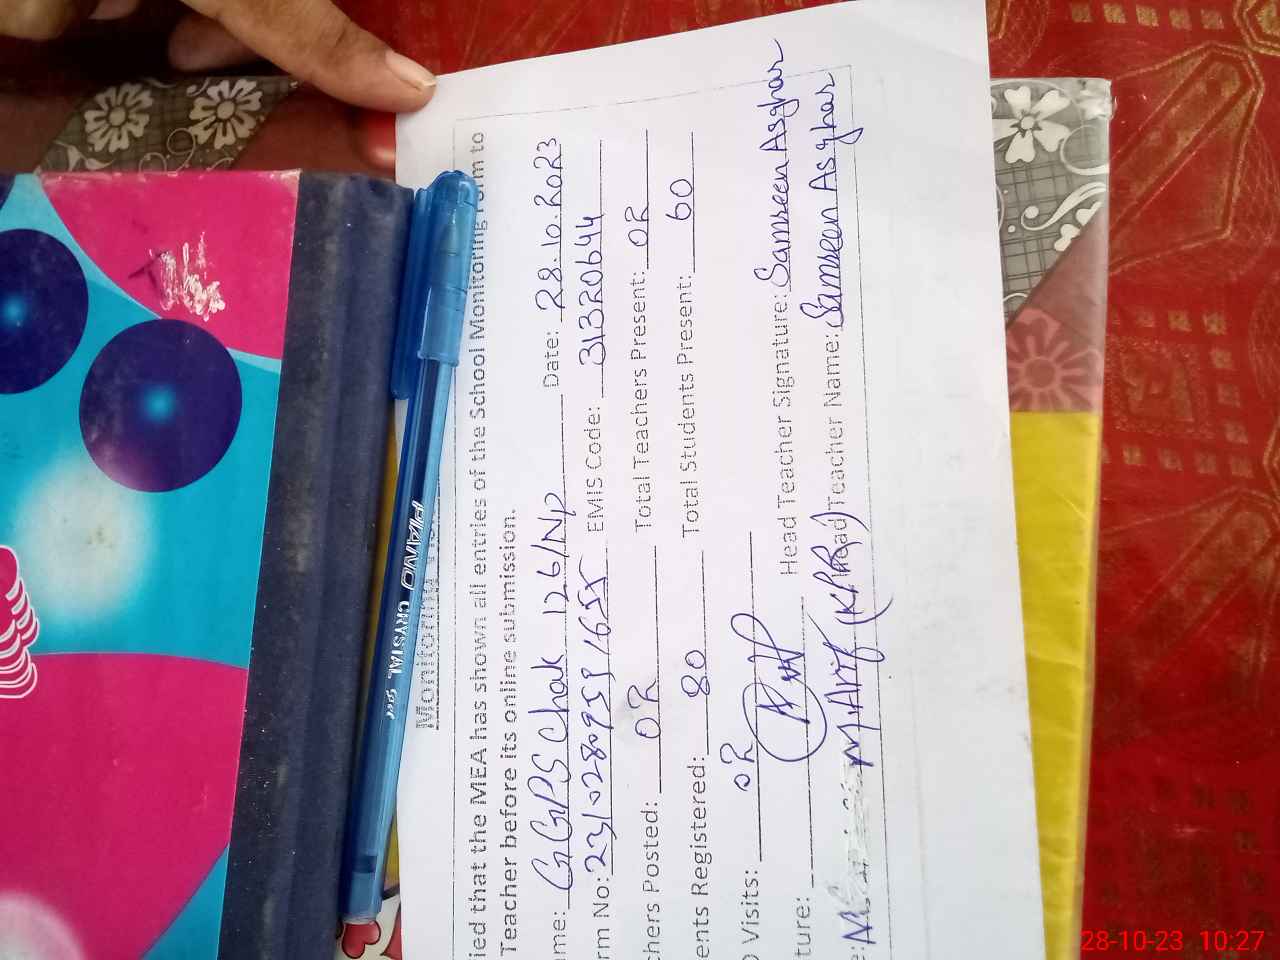 Monitoring
ied that the MEA has shown all entries of the School Monitoring Form to
Teacher before its online submission.
me: GGPS Chak 126/NP Date: 28.10.2023
rm No: EMIS Code: 31320644
chers Posted: 02 Total Teachers Present: 02
ents Registered: 80 Total Students Present: 60
Visits: 02
ture: Head Teacher Signature: Samreen Asghar
e: M.Arif (Head)Teacher Name: Samreen Asghar
PIANO CRYSTAL gel
28-10-23 10:27